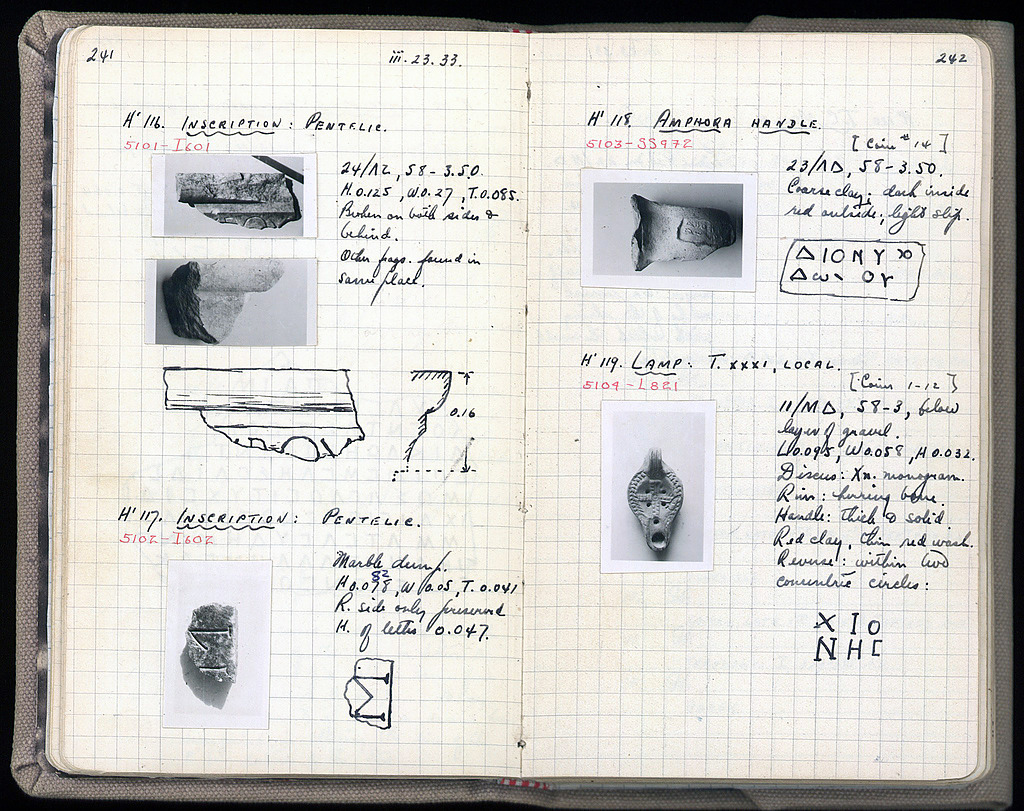 241
iii. 23. 33.
H' 116. INSCRIPTION: PENTELIC.
5101-I601
24/ΛΖ, 58-3.50.
H. 0.125, W. 0.27, T. 0.085.
Broken on both sides &
behind.
Other frags. found in
same place.
0.16
H' 117. INSCRIPTION: PENTELIC.
5102-I602
Marble dump.
82
H 0.078, W 0.05, T. 0.041
R. side only preserved
H. of letters 0.047.
242
H' 118. AMPHORA HANDLE.
5103-SS972
[Coin #14]
23/ΛΔ, 58-3.50.
Coarse clay; dark inside
red outside; light slip.
ΔΙΟΝΥ
H' 119. LAMP: T. XXXI, LOCAL.
5104-L821
[Coins 1-12]
11/ΜΔ, 58-3, below
layer of gravel.
L 0.095, W 0.058, H 0.032.
Discus: Xn. monogram.
Rim: herring bone.
Handle: thick & solid.
Red clay, thin red wash.
Reverse: within two
concentric circles:
Χ Ι Ο
Ν Η C